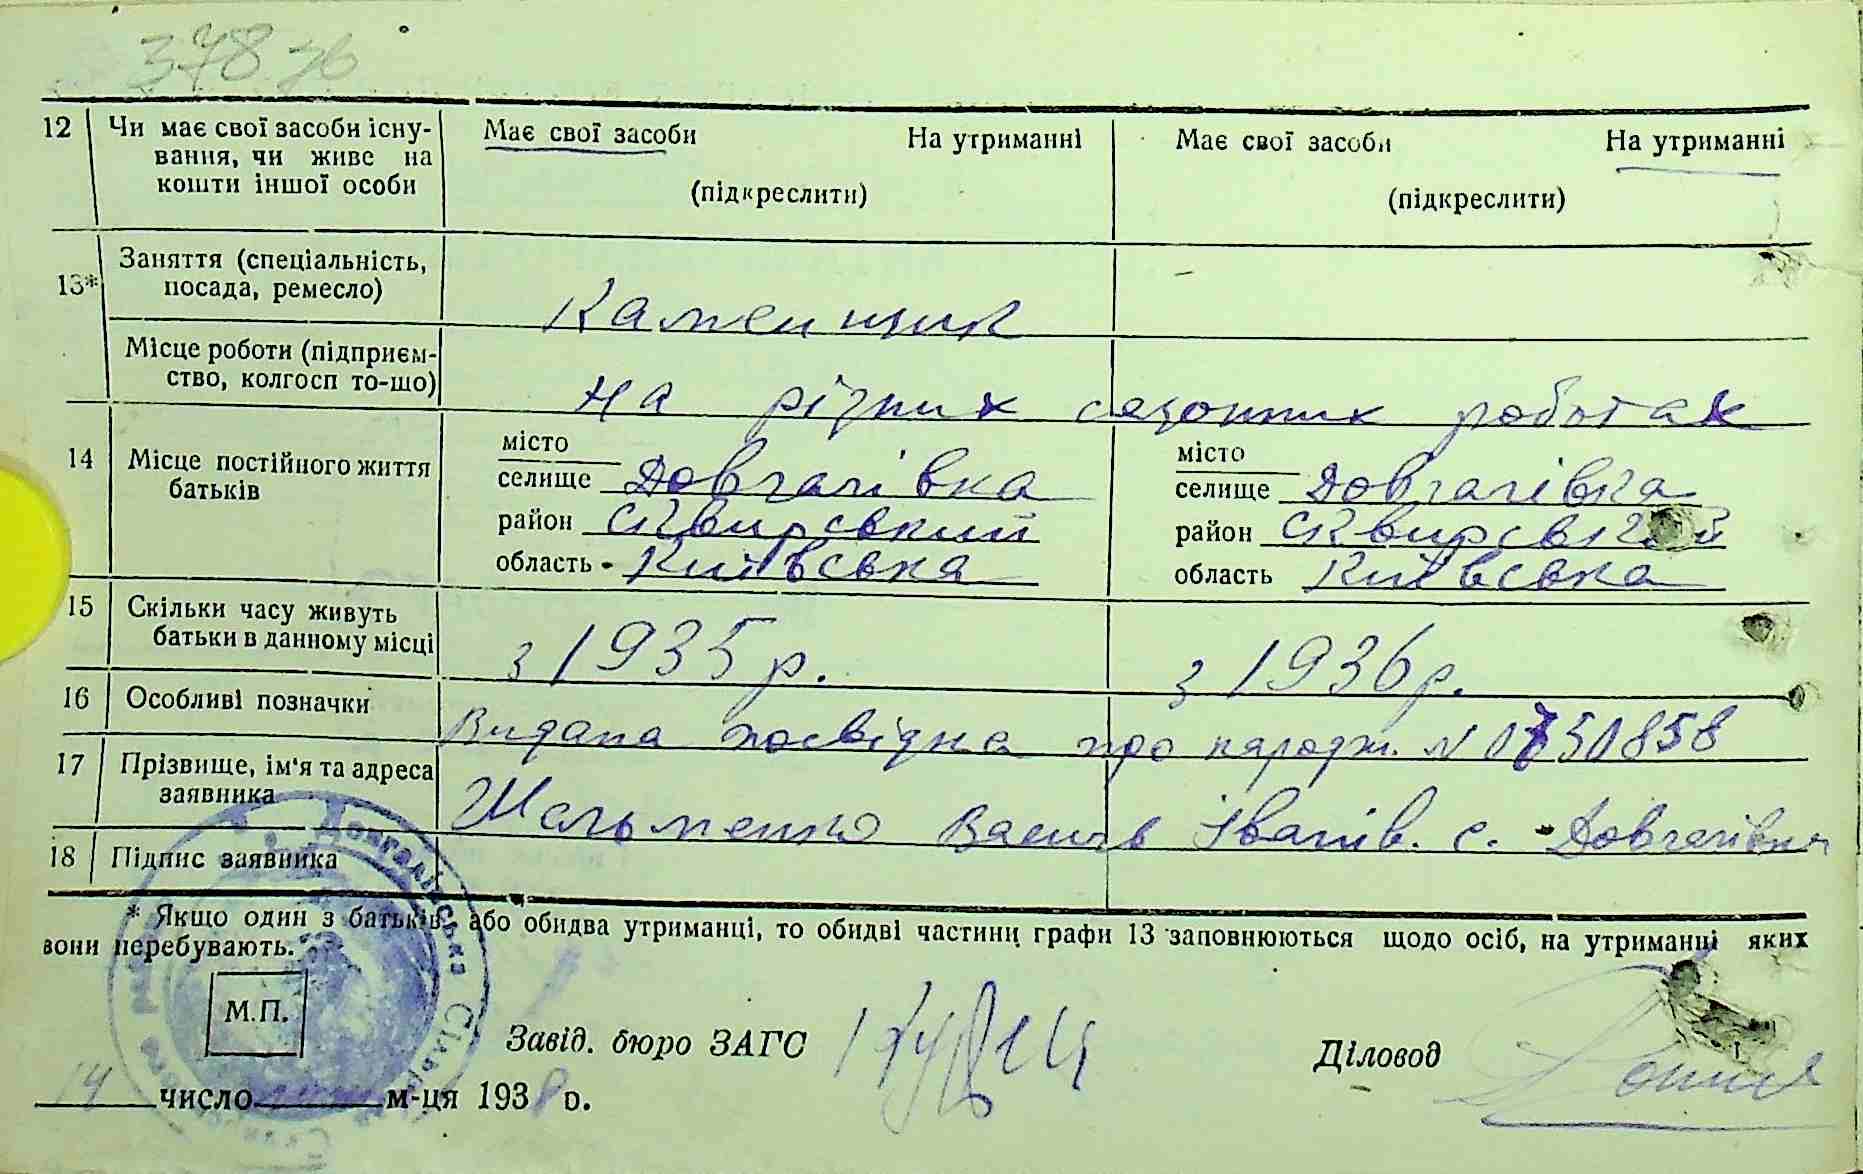 378 зв
12 Чи має свої засоби існу- Має свої засоби На утриманні Має свої засоби На утриманні
вання, чи живе на
кошти іншої особи (підкреслити) (підкреслити)
13* Заняття (спеціальність,
посада, ремесло) Каменщик -
Місце роботи (підприєм-
ство, колгосп то-що) на різних сезонних роботах
14 Місце постійного життя місто місто
батьків селище Довгалівка селище Довгалівка
район Сквирський район Сквирський
область Київська область Київська
15 Скільки часу живуть
батьки в данному місці з 1935 р. з 1936 р.
16 Особливі позначки Видана посвідка про народж. N 0750858
17 Прізвище, ім'я та адреса
заявника Шельменко Василь Іванів. с. Довгалівка
18 Підпис заявника
* Якщо один з батьків, або обидва утриманці, то обидві частини графи 13 заповнюються щодо осіб, на утриманці яких
вони перебувають.
М.П.
Завід. бюро ЗАГС Діловод
14 число м-ця 1938 р.